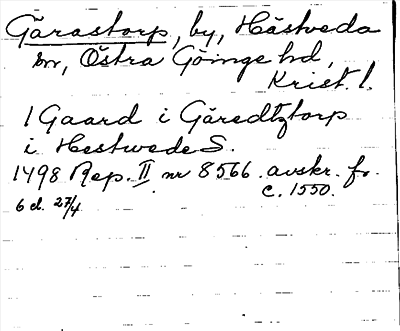 Gärastorp, by, Hästveda
sn, Östra Göinge hd,
Krist. l.
1 Gaard i Gäredtztorp
i Hestwede S.
1498 Rep. II nr 8566. avskr. fr.
c. 1550.
6 d. 27/4